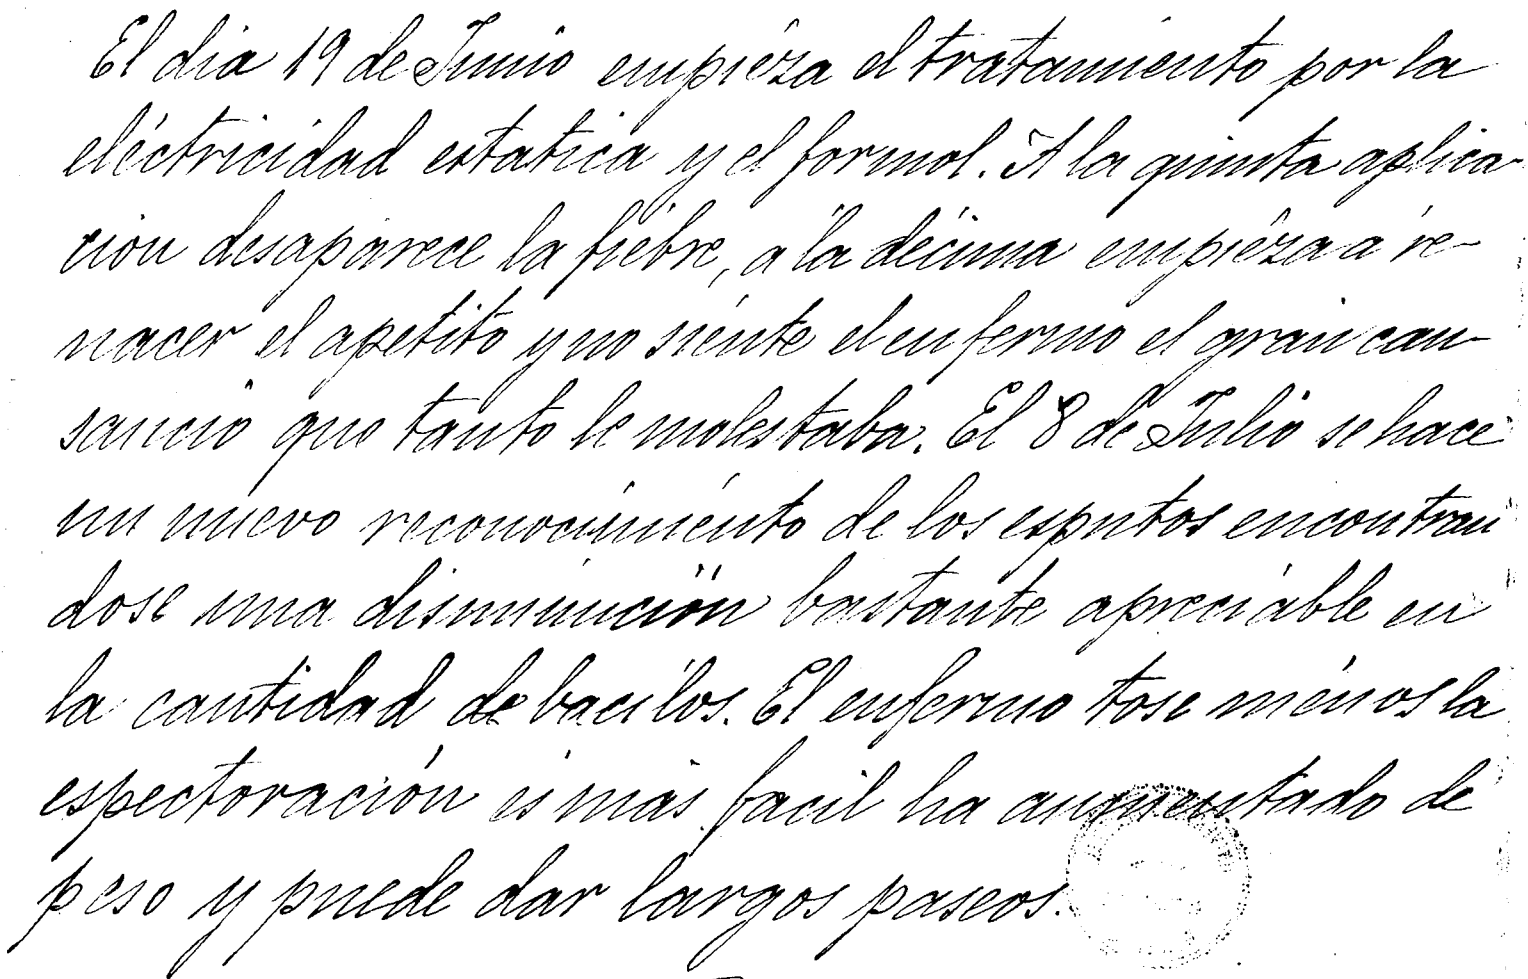 El dia 19 de Junio empieza el tratamiento por la
eléctricidad estatica y el formol. A la quinta aplica-
cion desaparece la fiebre, a la décima empieza a re-
nacer el apetito y no siente el enfermo el gran can-
sancio que tanto le molestaba. El 8 de Julio se hace
un nuevo reconocimiento de los esputos encontran
dose una disminución bastante apreciable en
la cantidad de bacilos. El enfermo tose menos la
espectoración es más facil ha aumentado de
peso y puede dar largos paseos.